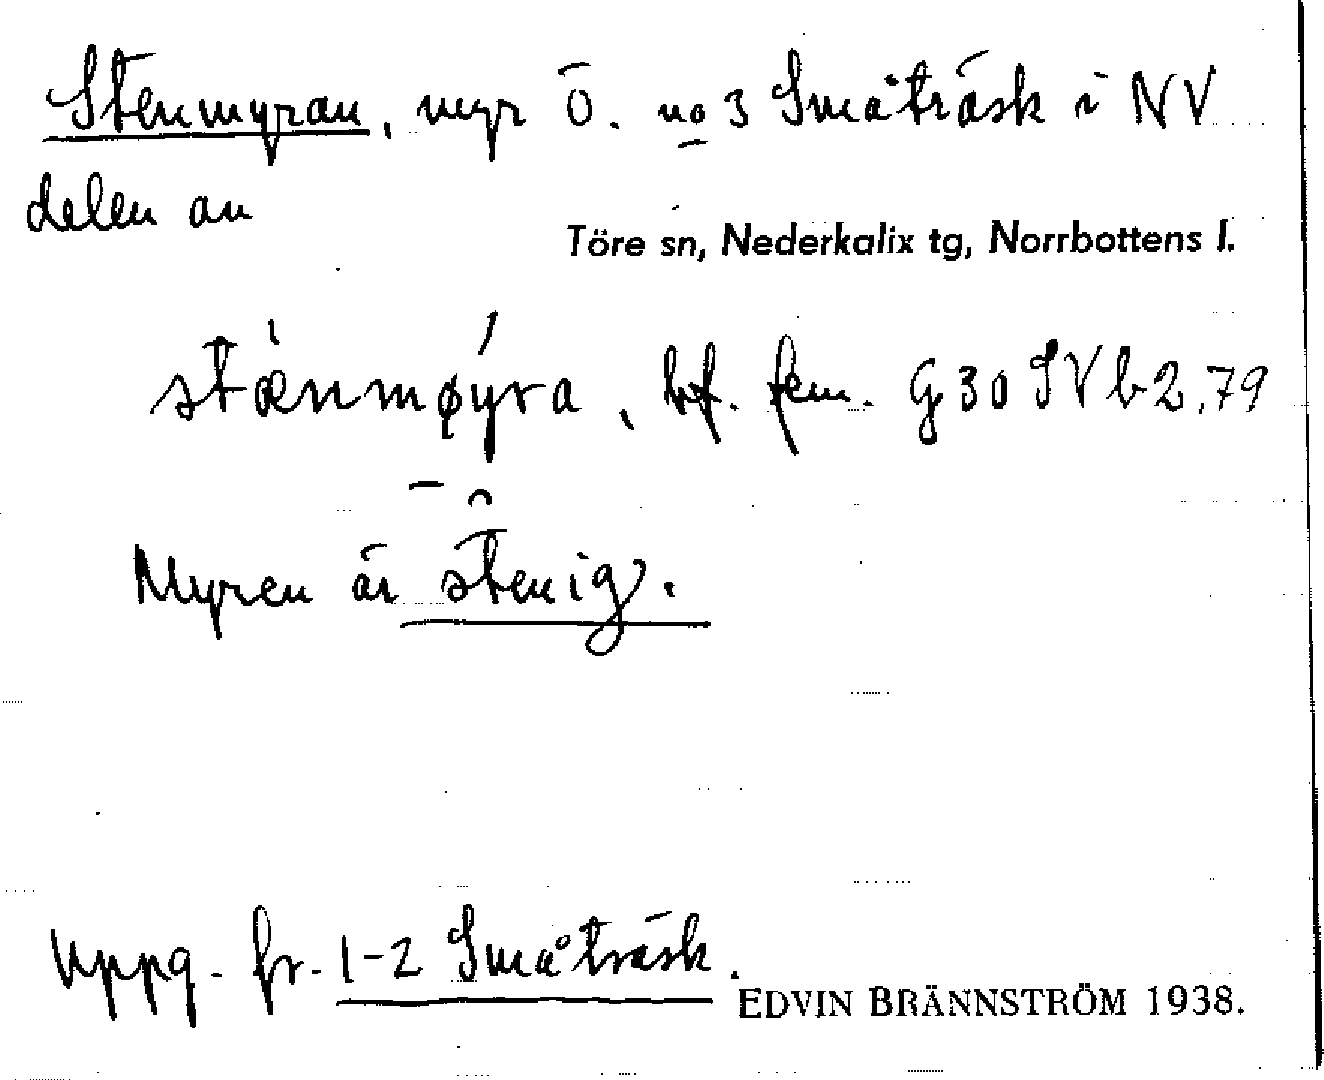 Stenmyran, myr Ö. no 3 Småträsk i NV
delen av
Töre sn, Nederkalix tg, Norrbottens l.
stænmøyra, bf. fem. G 30 SV b 2,79
Myren är stenig.
Uppg. fr. 1-2 Småträsk.
EDVIN BRÄNNSTRÖM 1938.